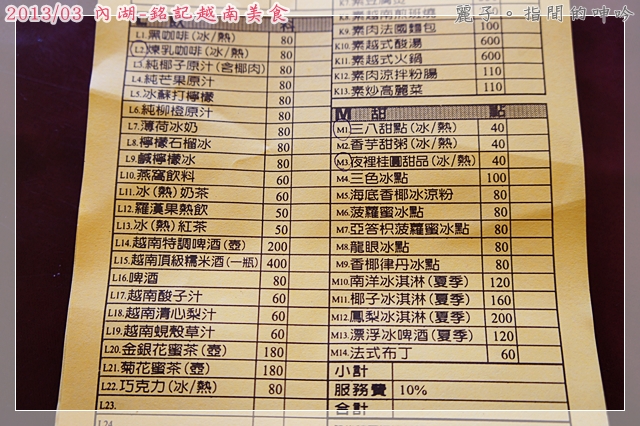 2013/03 內湖-銘記越南美食
麗子。指間的呻吟
料
L1.黑咖啡(冰/熱) 80
L2.煉乳咖啡(冰/熱) 80
L3.純椰子原汁(含椰肉) 80
L4.純芒果原汁 80
L5.冰蘇打檸檬 80
L6.純柳橙原汁 80
L7.薄荷冰奶 80
L8.檸檬石榴冰 80
L9.鹹檸檬冰 80
L10.燕窩飲料 60
L11.冰(熱)奶茶 60
L12.羅漢果熱飲 50
L13.冰(熱)紅茶 50
L14.越南特調啤酒(壺) 200
L15.越南頂級糯米酒(一瓶) 400
L16.啤酒 80
L17.越南酸子汁 60
L18.越南清心梨汁 60
L19.越南蜆殼草汁 60
L20.金銀花蜜茶(壺) 180
L21.菊花蜜茶(壺) 180
L22.巧克力(冰/熱) 80
L23.
L24
K9.素肉法國麵包 100
K10.素越式酸湯 600
K11.素越式火鍋 600
K12.素肉涼拌粉腸 110
K13.素炒高麗菜 110
M 甜 點
M1.三八甜點(冰/熱) 40
M2.香芋甜粥(冰/熱) 40
M3.夜裡桂圓甜品(冰/熱) 40
M4.三色冰點 100
M5.海底香椰冰涼粉 80
M6.菠蘿蜜冰點 80
M7.亞答枳菠蘿蜜冰點 80
M8.龍眼冰點 80
M9.香椰律丹冰點 80
M10.南洋冰淇淋(夏季) 120
M11.椰子冰淇淋(夏季) 160
M12.鳳梨冰淇淋(夏季) 200
M13.漂浮冰啤酒(夏季) 120
M14.法式布丁 60
小計
服務費 10%
合計